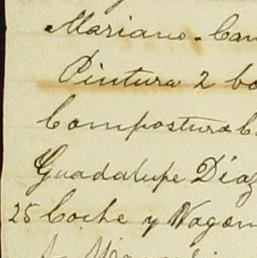 Mariano Cam
Pintura 2 bo
Compostura C
Guadalupe Díaz
25 Coche y Wagon